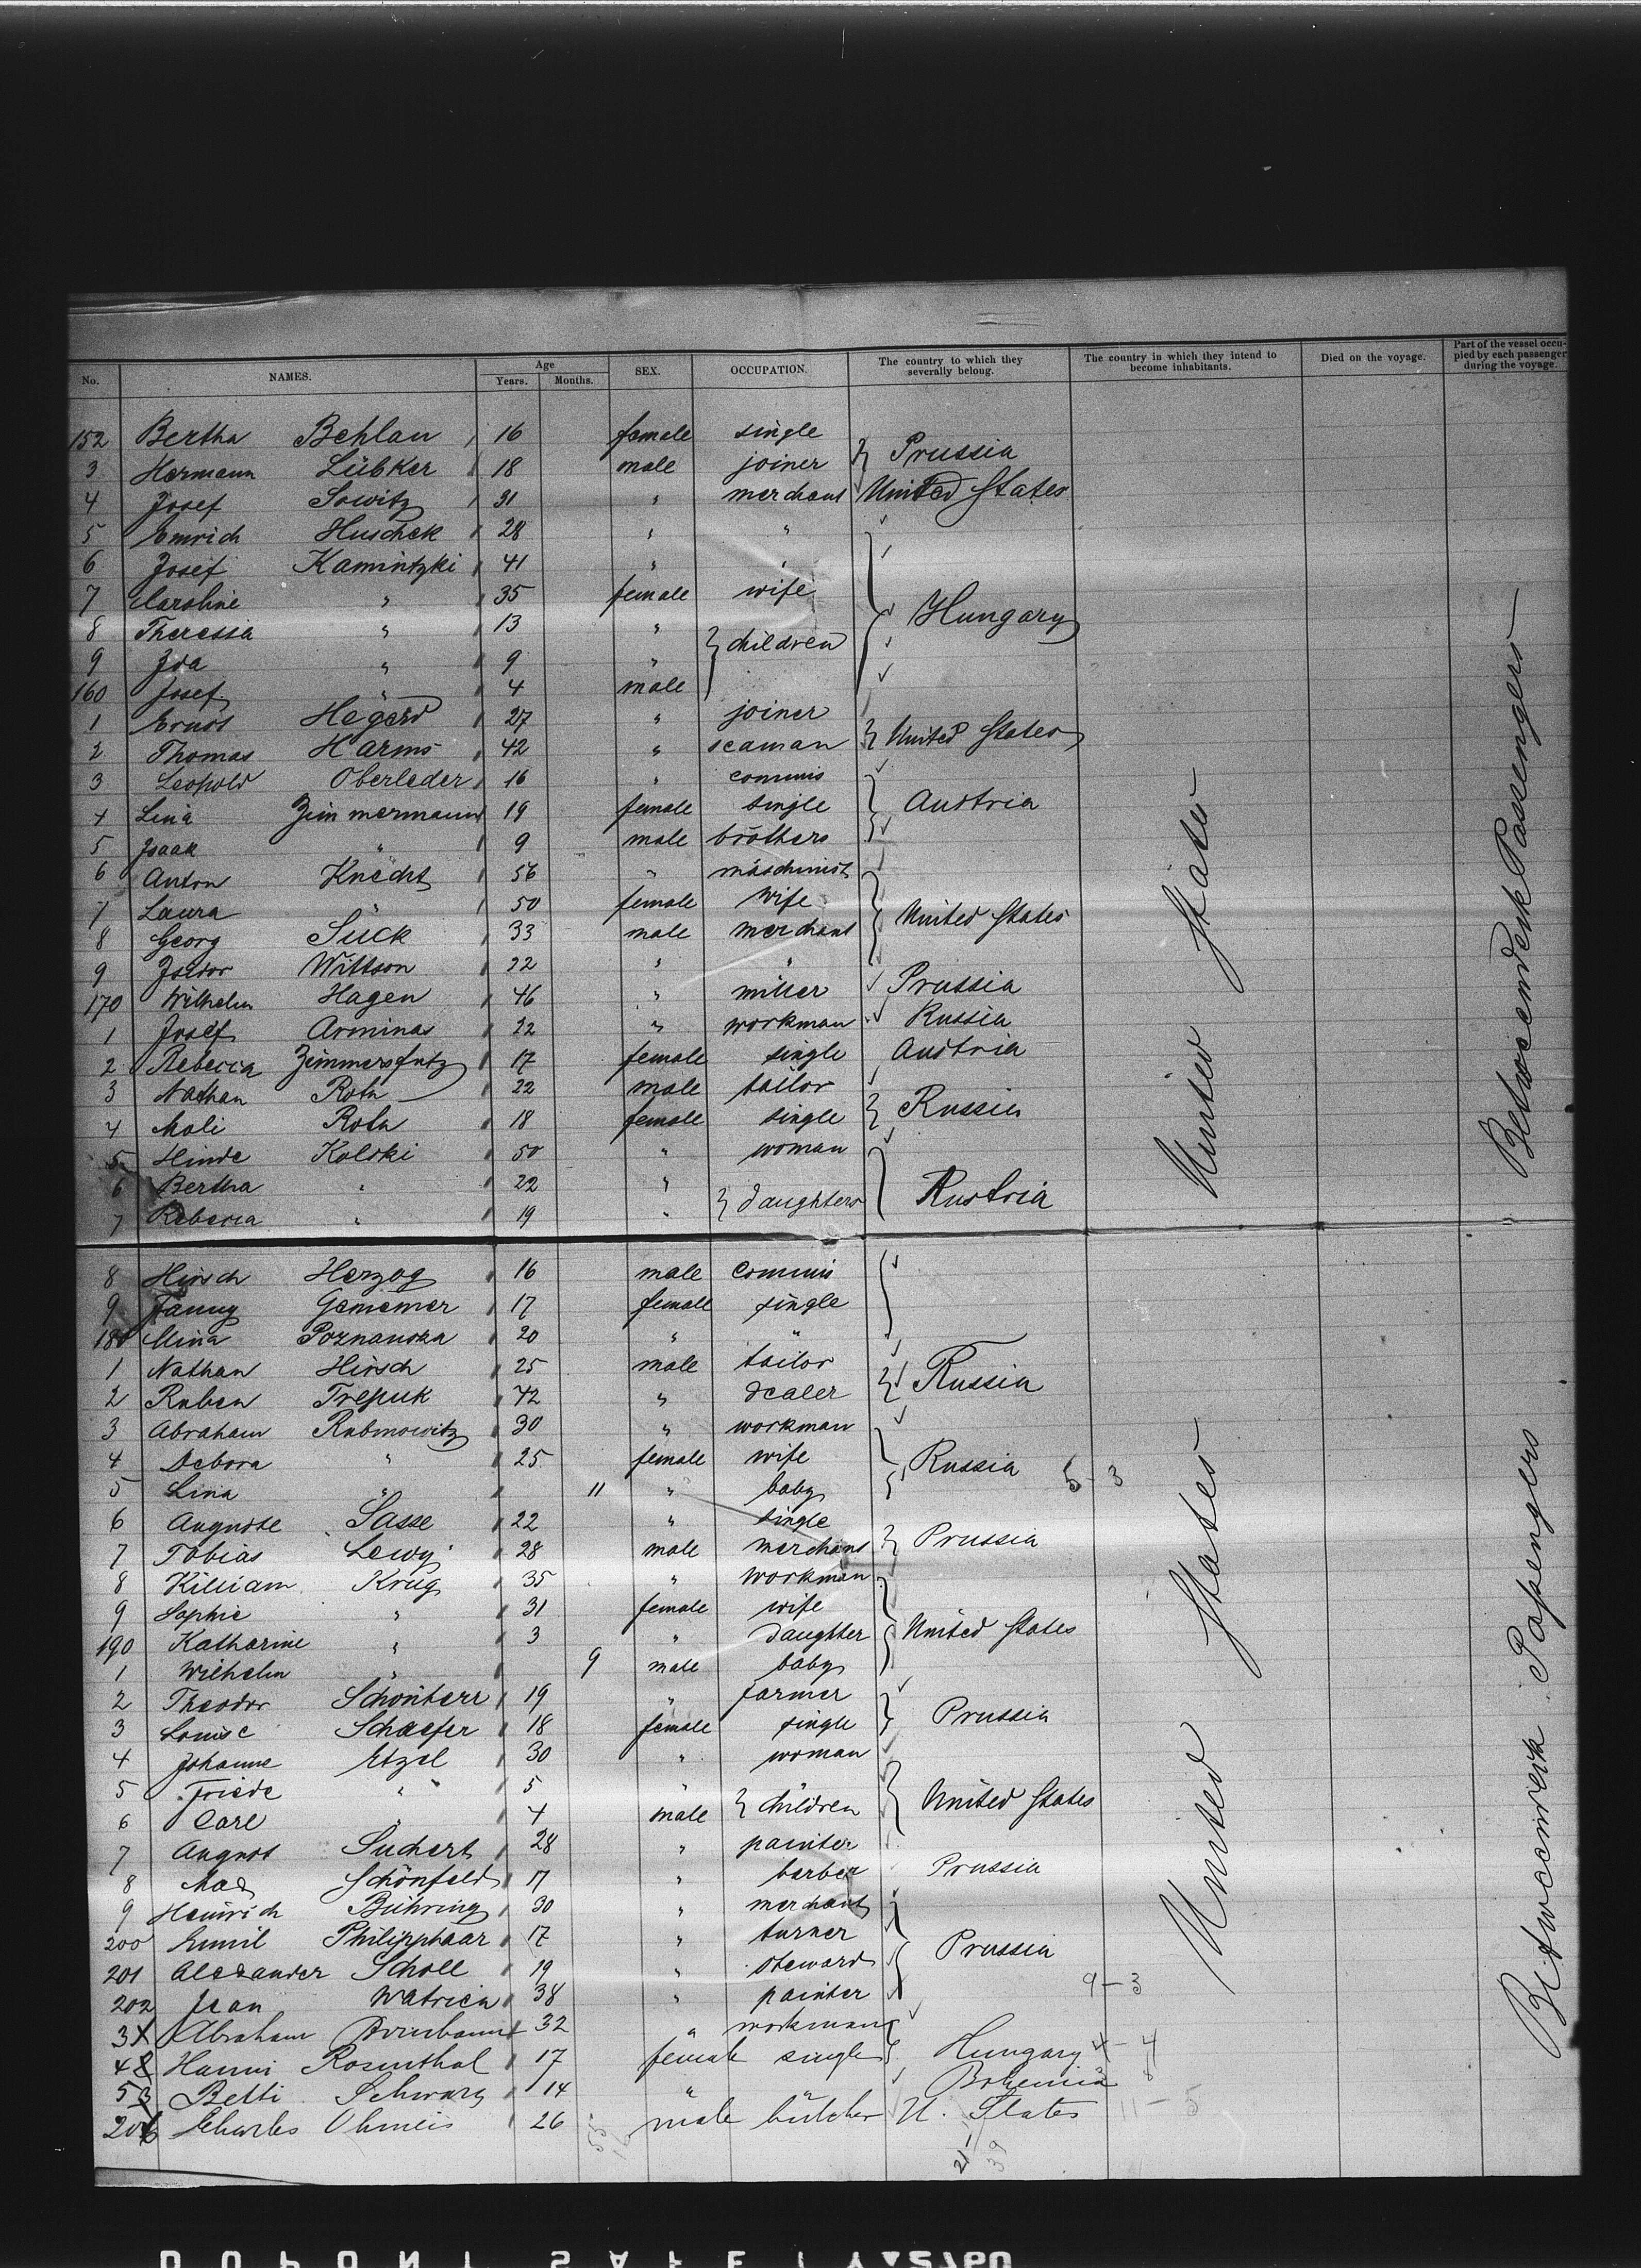 No. NAMES. Age Years. Months. SEX. OCCUPATION. The country to which they severally belong. The country in which they intend to become inhabitants. Died on the voyage. Part of the vessel occupied by each passenger during the voyage.
152 Bertha Behlau 16 female single
3 Hermann Lübker 18 male joiner Prussia
4 Josef Sowitz 31 " merchant United States
5 Emrich Huschek 28 " "
6 Josef Kamintzki 41 " "
7 Caroline " 35 female wife Hungary
8 Theressa " 13 " children
9 Ida " 9 "
160 Josef " 4 male
1 Ernst Hegerd 27 " joiner
2 Thomas Harms 42 " seaman United States
3 Leopold Oberleder 16 " commis
4 Lina Zimmermann 19 female single Austria
5 Isaak " 9 male brothers
6 Anton Knecht 56 " maschinist
7 Laura " 50 female wife
8 Georg Suck 33 male merchant United States
9 Isidor Wittson 22 " "
170 Wilhelm Hagen 46 " miller Prussia
1 Josef Arminas 22 " workman Russia
2 Rebecca 17 female single Austria
3 Nathan Roth 22 male tailor
4 Mali Roth 18 female single Russia
5 Hinde Kolski 50 " woman
6 Bertha " 22 " daughters Austria
7 Rebecca " 19 "
8 Hirsch Herzog 16 male commis
9 Fanny Gememer 17 female single
180 Mina Poznanska 20 " "
1 Nathan Hirsch 25 male tailor Russia
2 Ruben Trepuk 42 " dealer
3 Abraham Rabinowitz 30 " workman
4 Debora " 25 female wife Russia 5-3
5 Lina " 11 " baby
6 Auguste Sasse 22 " single
7 Tobias Lewy 28 male merchant Prussia
8 Killiam Krug 35 " workman
9 Sophie " 31 female wife
190 Katharine " 3 " daughter United States
1 Wilhelm " 9 male baby
2 Theodor Schönherr 19 " farmer
3 Louise Schaefer 18 female single Prussia
4 Johanne Etzel 30 " woman
5 Friede " 5 " children United States
6 Carl " 4 male
7 August Suchert 28 " painter
8 Max Schönfeld 17 " barber Prussia
9 Heinrich Bühring 30 " merchant
200 Emil Philipphaar 17 " turner
201 Alexander Scholl 19 " steward Prussia
202 Jean Watrien 38 " painter 9-3
3 Abraham 32 " workman
4 Hanni Rosenthal 17 female single Hungary 4-4
5 Betti Schwarz 14 " " Bohemia
206 Charles Ohmeis 26 male butcher U. States 11-5
United States
United States
Betweendeck Passengers
Betweendeck Passengers